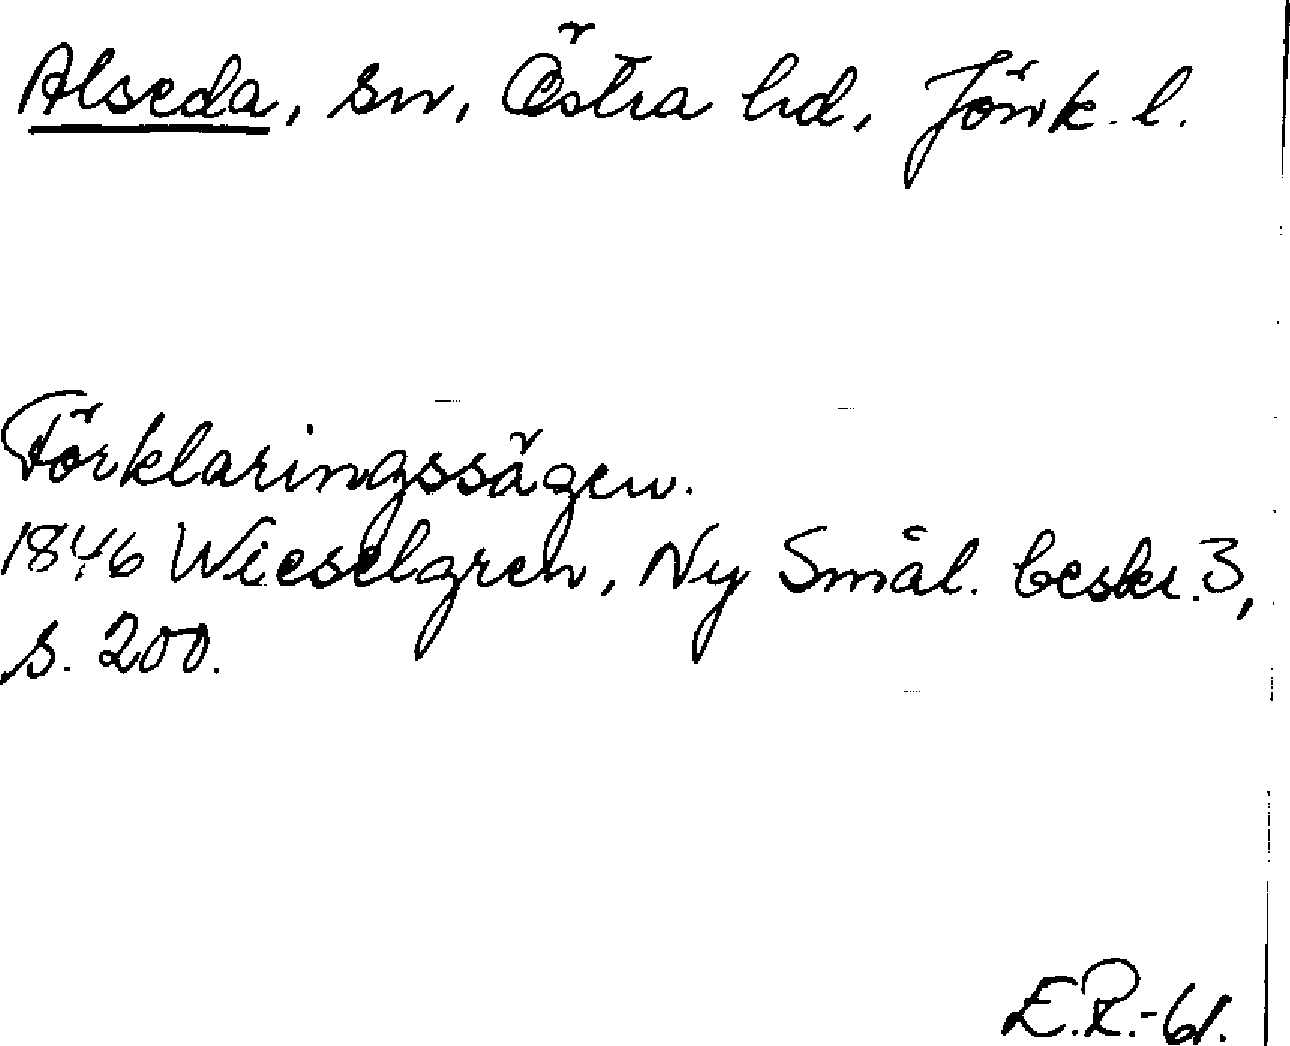 Alseda, sn, Östra hd, Jönk. l.
Förklaringssägen.
1846 Wieselgren, Ny Smål. beskr. 3,
s. 200.
E.R.-61.